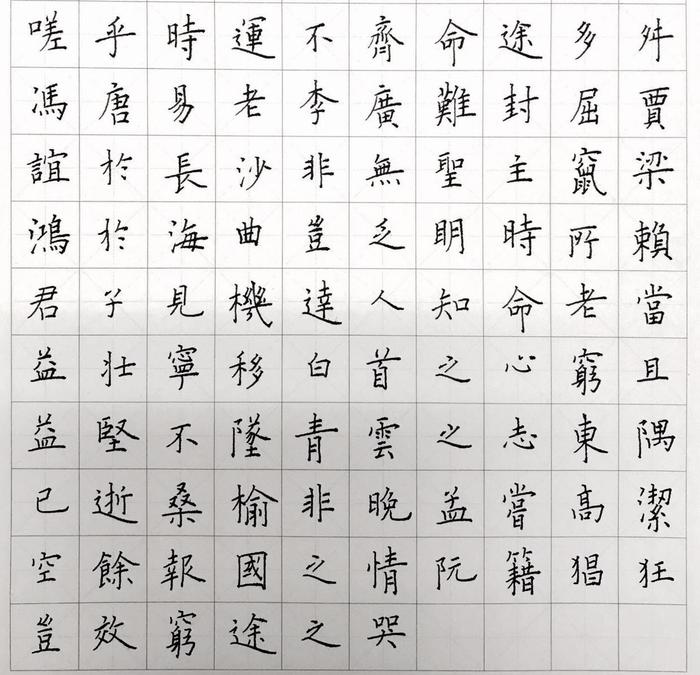 嗟乎時運不齊命途多舛
馮唐易老李廣難封屈賈
誼於長沙非無聖主竄梁
鴻於海曲豈乏明時所賴
君子見機達人知命老當
益壯寧移白首之心窮且
益堅不墜青雲之志東隅
已逝桑榆非晚孟嘗高潔
空餘報國之情阮籍猖狂
豈效窮途之哭